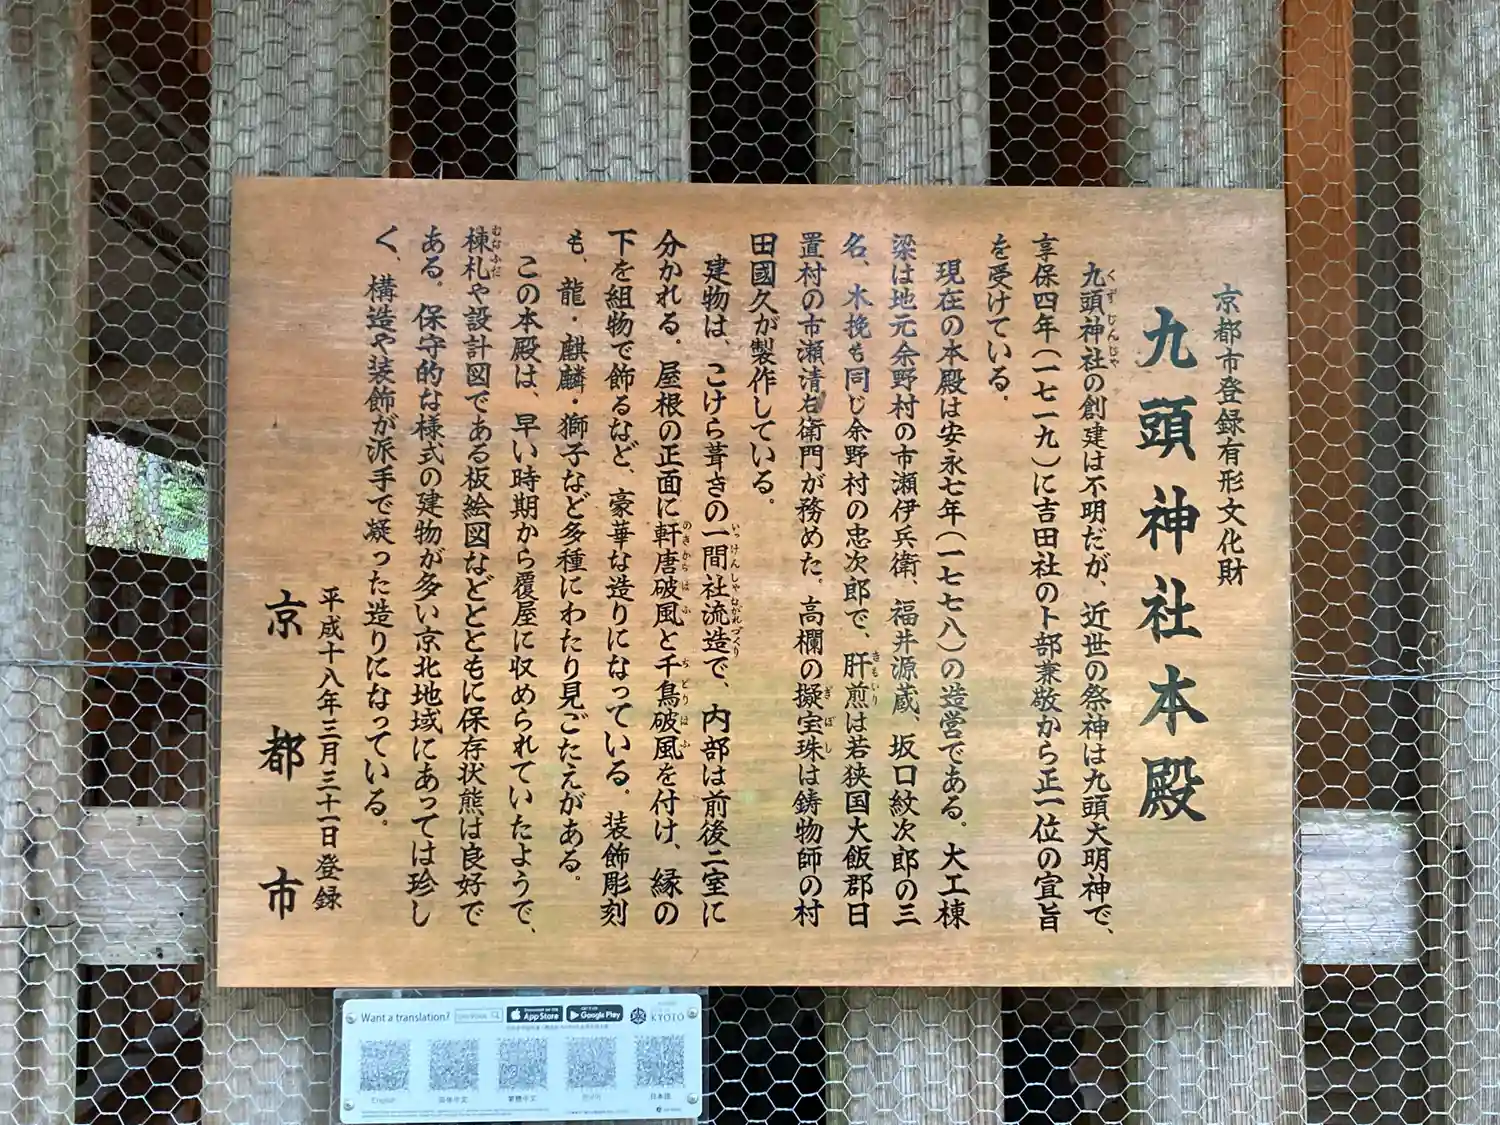 京都市登録有形文化財
九頭神社本殿
九頭神社の創建は不明だが、近世の祭神は九頭大明神で、
くずじんじゃ
享保四年(一七一九)に吉田社の卜部兼敬から正一位の宣旨
を受けている。
現在の本殿は安永七年(一七七八)の造営である。大工棟
梁は地元余野村の市瀬伊兵衛、福井源蔵、坂口紋次郎の三
名、木挽も同じ余野村の忠次郎で、肝煎は若狭国大飯郡日
きもいり
置村の市瀬清右衛門が務めた。高欄の擬宝珠は鋳物師の村
ぎぼし
田國久が製作している。
建物は、こけら葺きの一間社流造で、内部は前後二室に
いっけんしゃながれづくり
分かれる。屋根の正面に軒唐破風と千鳥破風を付け、縁の
のきからはふ
ちどりはふ
下を組物で飾るなど、豪華な造りになっている。装飾彫刻
も、龍・麒麟・獅子など多種にわたり見ごたえがある。
この本殿は、早い時期から覆屋に収められていたようで、
棟札や設計図である板絵図などとともに保存状熊は良好で
むなふだ
ある。保守的な様式の建物が多い京北地域にあっては珍し
く、構造や装飾が派手で凝った造りになっている。
平成十八年三月三十一日登録
京都市
Want a translation?
App Store
Google Play
KYOTO
English
简体中文
繁體中文
日本語